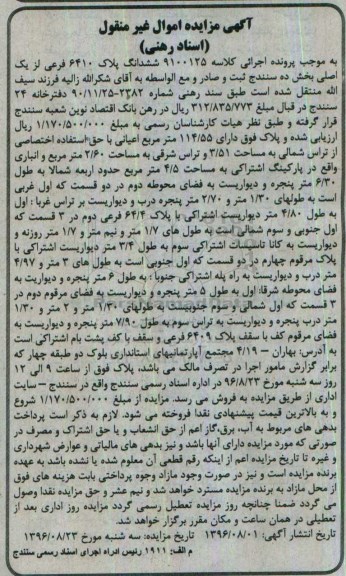 آگهی مزایده اموال غیر منقول
(اسناد رهنی)
به موجب پرونده اجرائی کلاسه ۹۱۰۰۱۲۵ ششدانگ پلاک ۶۴۱۰ فرعی از یک
اصلی بخش ده سنندج ثبت و صادر و مع الواسطه به آقای شکرالله زالیه فرزند سیف
الله منتقل شده است طبق سند رهنی شماره ۲۳۸۲-۹۰/۱۱/۲۵ دفترخانه ۲۴
سنندج در قبال مبلغ ۳۱۲/۸۳۵/۷۷۳ ریال در رهن بانک اقتصاد نوین شعبه سنندج
قرار گرفته و طبق نظر هیات کارشناسان رسمی به مبلغ ۱/۱۷۰/۵۰۰/۰۰۰ ریال
ارزیابی شده و پلاک فوق دارای ۱۱۴/۵۵ متر مربع اعیانی با حق استفاده اختصاصی
از تراس شمالی به مساحت ۳/۵۱ و تراس شرقی به مساحت ۲/۶۰ متر مربع و انباری
واقع در پارکینگ اشتراکی به مساحت ۴/۵ متر مربع حدود اربعه شمالا به طول
۶/۳۰ متر پنجره و دیواریست به فضای محوطه دوم در دو قسمت که اول غربی
است به طولهای ۱/۳۰ متر و ۲/۷۰ متر پنجره ودرب ودیواریست بر تراس غربا : اول
به طول ۴/۸۰ متر دیواریست اشتراکی با پلاک ۶۴/۴ فرعی دوم در ۳ قسمت که
اول جنوبی و سوم شمالی است به طول های ۱/۷ متر و نیم متر و ۱/۷ متر روزنه و
دیواریست به کانا تاسیسات اشتراکی سوم به طول ۳/۴ متر دیواریست اشتراکی با
پلاک مرقوم چهارم در دو قسمت که اول جنوبی است به طول های ۳ متر و ۴/۹۷
متر درب و دیواریست به راه پله اشتراکی جنوبا : به طول ۶ متر پنجره و دیواریت به
فضای محوطه شرقا: اول به طول ۵ متر پنجره و دیواریست به فضای مرقوم دوم در
۳ قسمت که اول شمالی و سوم جنوبیست به طولهای ۱/۳۰ متر و ۲ متر و ۱/۳۰
متر درب پنجره و دیواریست به تراس سوم به طول ۷/۹۰ متر پنجره و دیواریست به
فضای مرقوم کف با سقف پلاک ۶۴۰۹ فرعی و سقف با کف پشت بام اشتراکی است
به آدرس: بهاران – ۴/۱۹ مجتمع آپارتمانیهای استانداری بلوک دو طبقه چهار که
برابر گزارش مامور اجرا در تصرف مالک می باشد، پلاک فوق از ساعت ۹ الی ۱۲
روز سه شنبه مورخ ۹۶/۸/۲۳ در اداره اسناد رسمی سنندج واقع در سنندج – سایت
اداری از طریق مزایده به فروش می رسد. مزایده از مبلغ ۱/۱۷۰/۵۰۰/۰۰۰ شروع
و به بالاترین قیمت پیشنهادی نقدا فروخته می شود. لازم به ذکر است پرداخت
بدهی های مربوط به آب، برق،گاز اعم از حق انشعاب و یا حق اشتراک و مصرف در
صورتی که مورد مزایده دارای آنها باشد و نیز بدهی های مالیاتی و عوارض شهرداری
و غیره تا تاریخ مزایده اعم از اینکه رقم قطعی آن معلوم شده یا نشده باشد به عهده
برنده مزایده است و نیز در صورت وجود مازاد وجوه پرداختی بابت هزینه های فوق
از محل مازاد به برنده مزایده مسترد خواهد شد و نیم عشر و حق مزایده نقدا وصول
می گردد ضمنا چنانچه روز مزایده تعطیل رسمی گردد مزایده روز اداری بعد از
تعطیلی در همان ساعت و مکان مقرر برگزار خواهد شد.
تاریخ انتشار آگهی: ۱۳۹۶/۰۸/۰۱ تاریخ مزایده: سه شنبه مورخ ۱۳۹۶/۰۸/۲۳
م الف: ۱۹۱۱ رئیس اداره اجرای اسناد رسمی سنندج